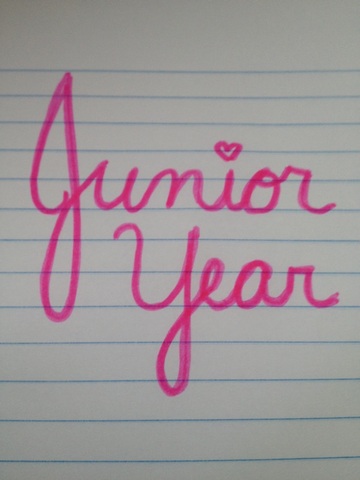 Junior
Year